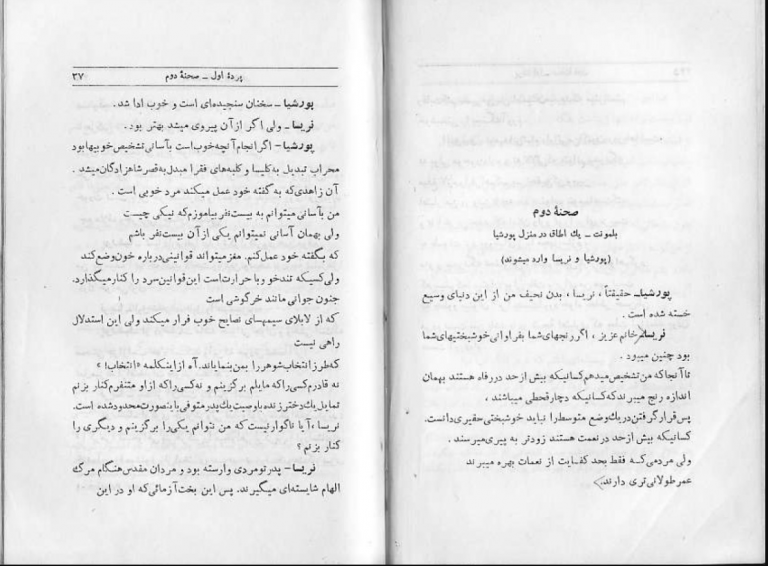 صحنهٔ دوم
بلمونت ـ یك اطاق در منزل پورشیا
(پورشیا و نریسا وارد میشوند)
پورشیاـ حقیقتاً ، نریسا ، بدن نحیف من از این دنیای وسیع
خسته شده است .
نریساـ خانم عزیز ، اگر رنجهای شما بفراوانی خوشبختیهای شما
بود چنین میبود .
تاآنجا که من تشخیص میدهم کسانیکه بیش از حد در رفاه هستند بهمان
اندازه رنج میبرند که کسانیکه دچار قحطی میباشند ،
پس قرار گرفتن در یك وضع متوسط را نباید خوشبختی حقیری دانست.
کسانیکه بیش از حد در نعمت هستند زودتر به پیری میرسند .
ولی مردمی که فقط بحد کفایت از نعمات بهره میبرند
عمر طولانی تری دارند.
پردهٔ اول ـ صحنهٔ دوم ۳۷
پورشیا ـ سخنان سنجیده‌ای است و خوب ادا شد .
نریسا ـ ولی اگر از آن پیروی میشد بهتر بود .
پورشیا ـ اگر انجام آنچه خوب است بآسانی تشخیص خوبیها بود
محراب تبدیل به کلیسا و کلبه‌های فقرا مبدل به قصر شاهزادگان میشد .
آن زاهدی که به گفته خود عمل میکند مرد خوبی است .
من بآسانی میتوانم به بیست نفر بیاموزم که نیکی چیست
ولی بهمان آسانی نمیتوانم یکی از آن بیست نفر باشم
که بگفته خود عمل کنم. مغز میتواند قوانینی درباره خون وضع کند
ولی کسیکه تندخو و با حرارت است این قوانین سرد را کنار میگذارد.
جنون جوانی مانند خرگوشی است
که از لابلای سیمهای نصایح خوب فرار میکند ولی این استدلال
راهی نیست
که طرز انتخاب شوهر را بمن بنمایاند. آه از اینکلمه «انتخاب! »
نه قادرم کسی را که مایلم برگزینم و نه کسی را که از او متنفرم کنار بزنم
تمایل یك دختر زنده با وصیت یك پدر متوفی باینصورت محدود شده است.
نریسا ، آیا ناگوار نیست که من نتوانم یکی را برگزینم و دیگری را
کنار بزنم ؟
نریسا ـ پدر تو مردی وارسته بود و مردان مقدس هنگام مرگ
الهام شایسته‌ای میگیرند. پس این بخت آزمائی که او در این